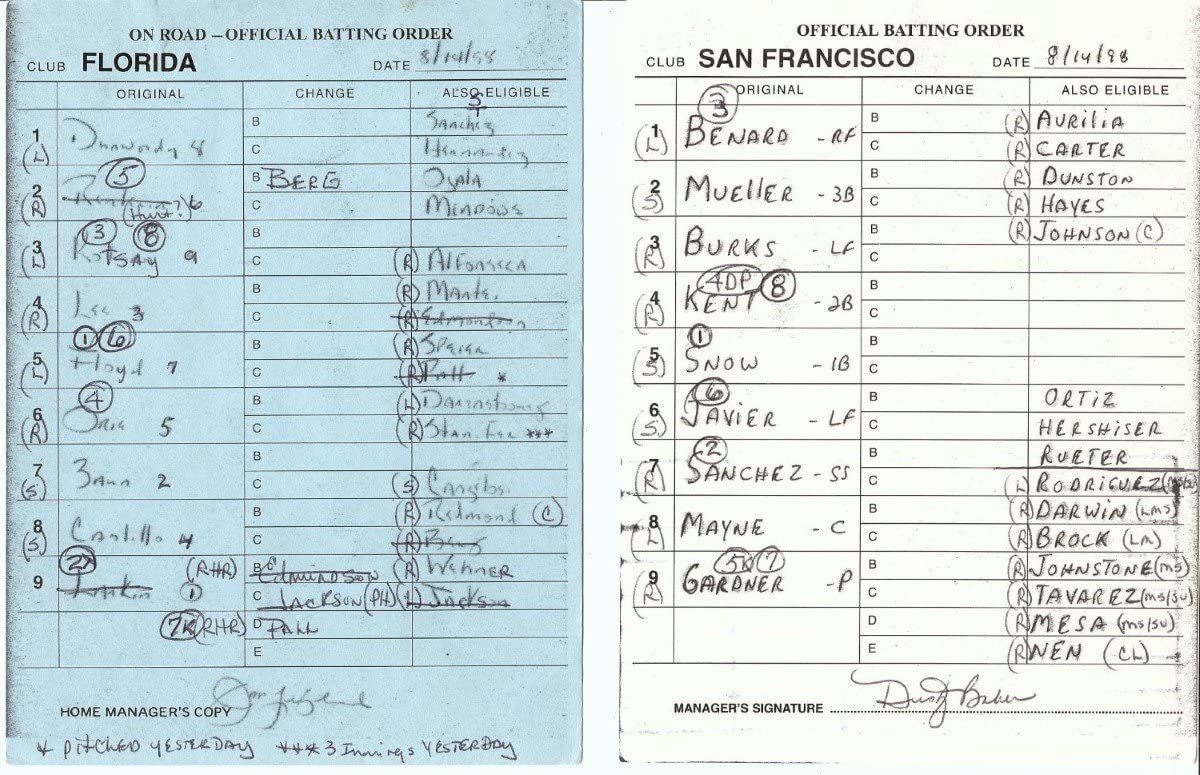 ON ROAD – OFFICIAL BATTING ORDER
CLUB FLORIDA DATE 8/14/98
ORIGINAL CHANGE ALSO ELIGIBLE
1 (L) Dunwoody 8 B C Sanchez Hernandez
2 (R) (Hurt?) 6 5 B BERG C Ojala Meadows
3 (L) 3 8 KOTSAY 9 B C (R) Alfonseca
4 (R) Lee 3 B (R) C (R) Edmondson
5 (L) 1 6 Floyd 7 B (R) C (R) Pall *
6 (R) 4 5 B (L) C (R) ***
7 (S) Zaun 2 B C (S) Cangelosi
8 (S) Castillo 4 B (R) Redmond (C) C (R) Berg
9 2 1 (RHR) B EDMONDSON (R) WEHNER
C JACKSON (PH) (L) JACKSON
7K (RHR) D PALL
E
HOME MANAGER'S COPY
* PITCHED YESTERDAY *** 3 Innings YESTERDAY
OFFICIAL BATTING ORDER
CLUB SAN FRANCISCO DATE 8/14/98
ORIGINAL CHANGE ALSO ELIGIBLE
3
1 (L) BENARD - RF B (R) AURILIA
C (R) CARTER
2 (S) MUELLER - 3B B (R) DUNSTON
C (R) HAYES
3 (R) BURKS - LF B (R) JOHNSON (C)
C
4DP 8
4 (R) KENT - 2B B
C
1
5 (S) SNOW - 1B B
C
6
6 (S) JAVIER - LF B ORTIZ
C HERSHISER
2
7 (R) SANCHEZ - SS B RUETER
C (L) RODRIGUEZ
8 (L) MAYNE - C B (R) DARWIN (LMS)
C (R) BROCK (LM)
5K 7
9 (R) GARDNER - P B (R) JOHNSTONE (MS)
C (R) TAVAREZ (MS/SU)
D (R) MESA (MS/SU)
E (R) NEN (CL)
MANAGER'S SIGNATURE Dusty Baker